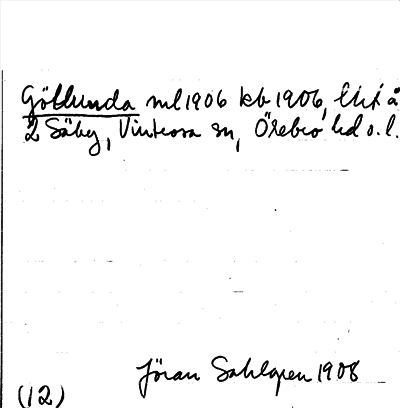 Götlunda ml 1906 kb 1906, lht å
2 Säby, Vintrosa sn, Örebro hd o. l.
Jöran Sahlgren 1908
(12)